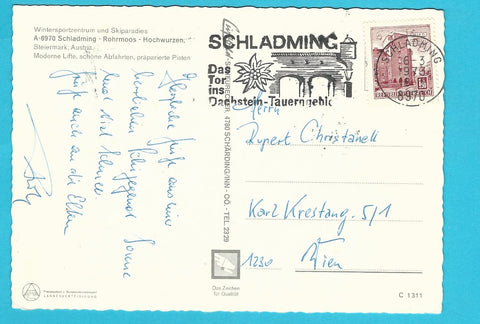 Wintersportzentrum und Skiparadies
A-8970 Schladming - Rohrmoos - Hochwurzen,
Steiermark, Austria.
Moderne Lifte, schöne Abfahrten, präparierte Pisten
Herzliche Grüße aus einer
herrlichen Schigegend. Sonne
und viel Schnee
Grüße auch an die Eltern
SCHLADMING
Das
Tor
ins
Dachstein-Tauerngebiet
SCHLADMING
1973
8970
4780 SCHÄRDING/INN - OÖ - TEL. 2329
Herrn
Rupert Christanell
Karl Krestang. 5/1
1230 Wien
Das Zeichen
für Qualität
C 1311